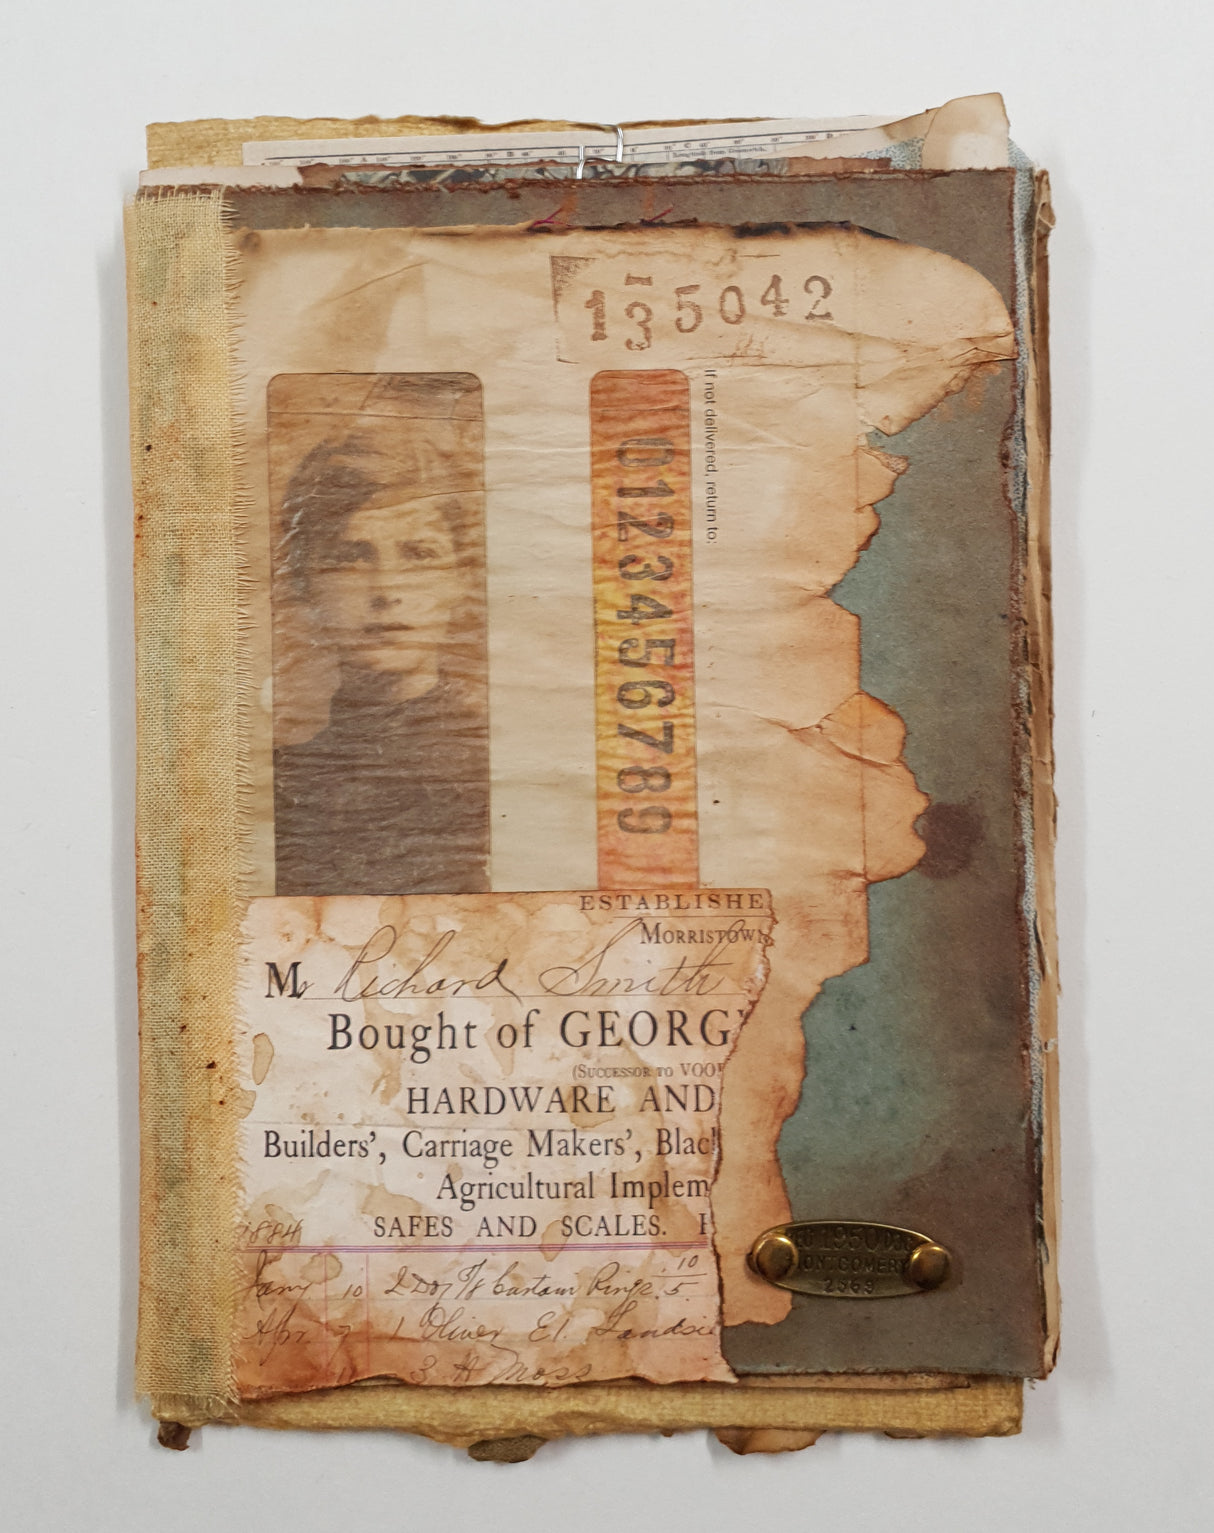 Longitude from Greenwich.
135042
If not delivered, return to:
0123456789
ESTABLISHE
MORRISTOWN
Mr Richard Smith
Bought of GEORG
(SUCCESSOR TO VOO
HARDWARE AND
Builders', Carriage Makers', Blac
Agricultural Implem
SAFES AND SCALES.
1884
Jany 10 2 Doz Curtain Rings .10 5
Apr. 7 1 Oliver
3 Moss
1950 DOG
MONTGOMERY
2969